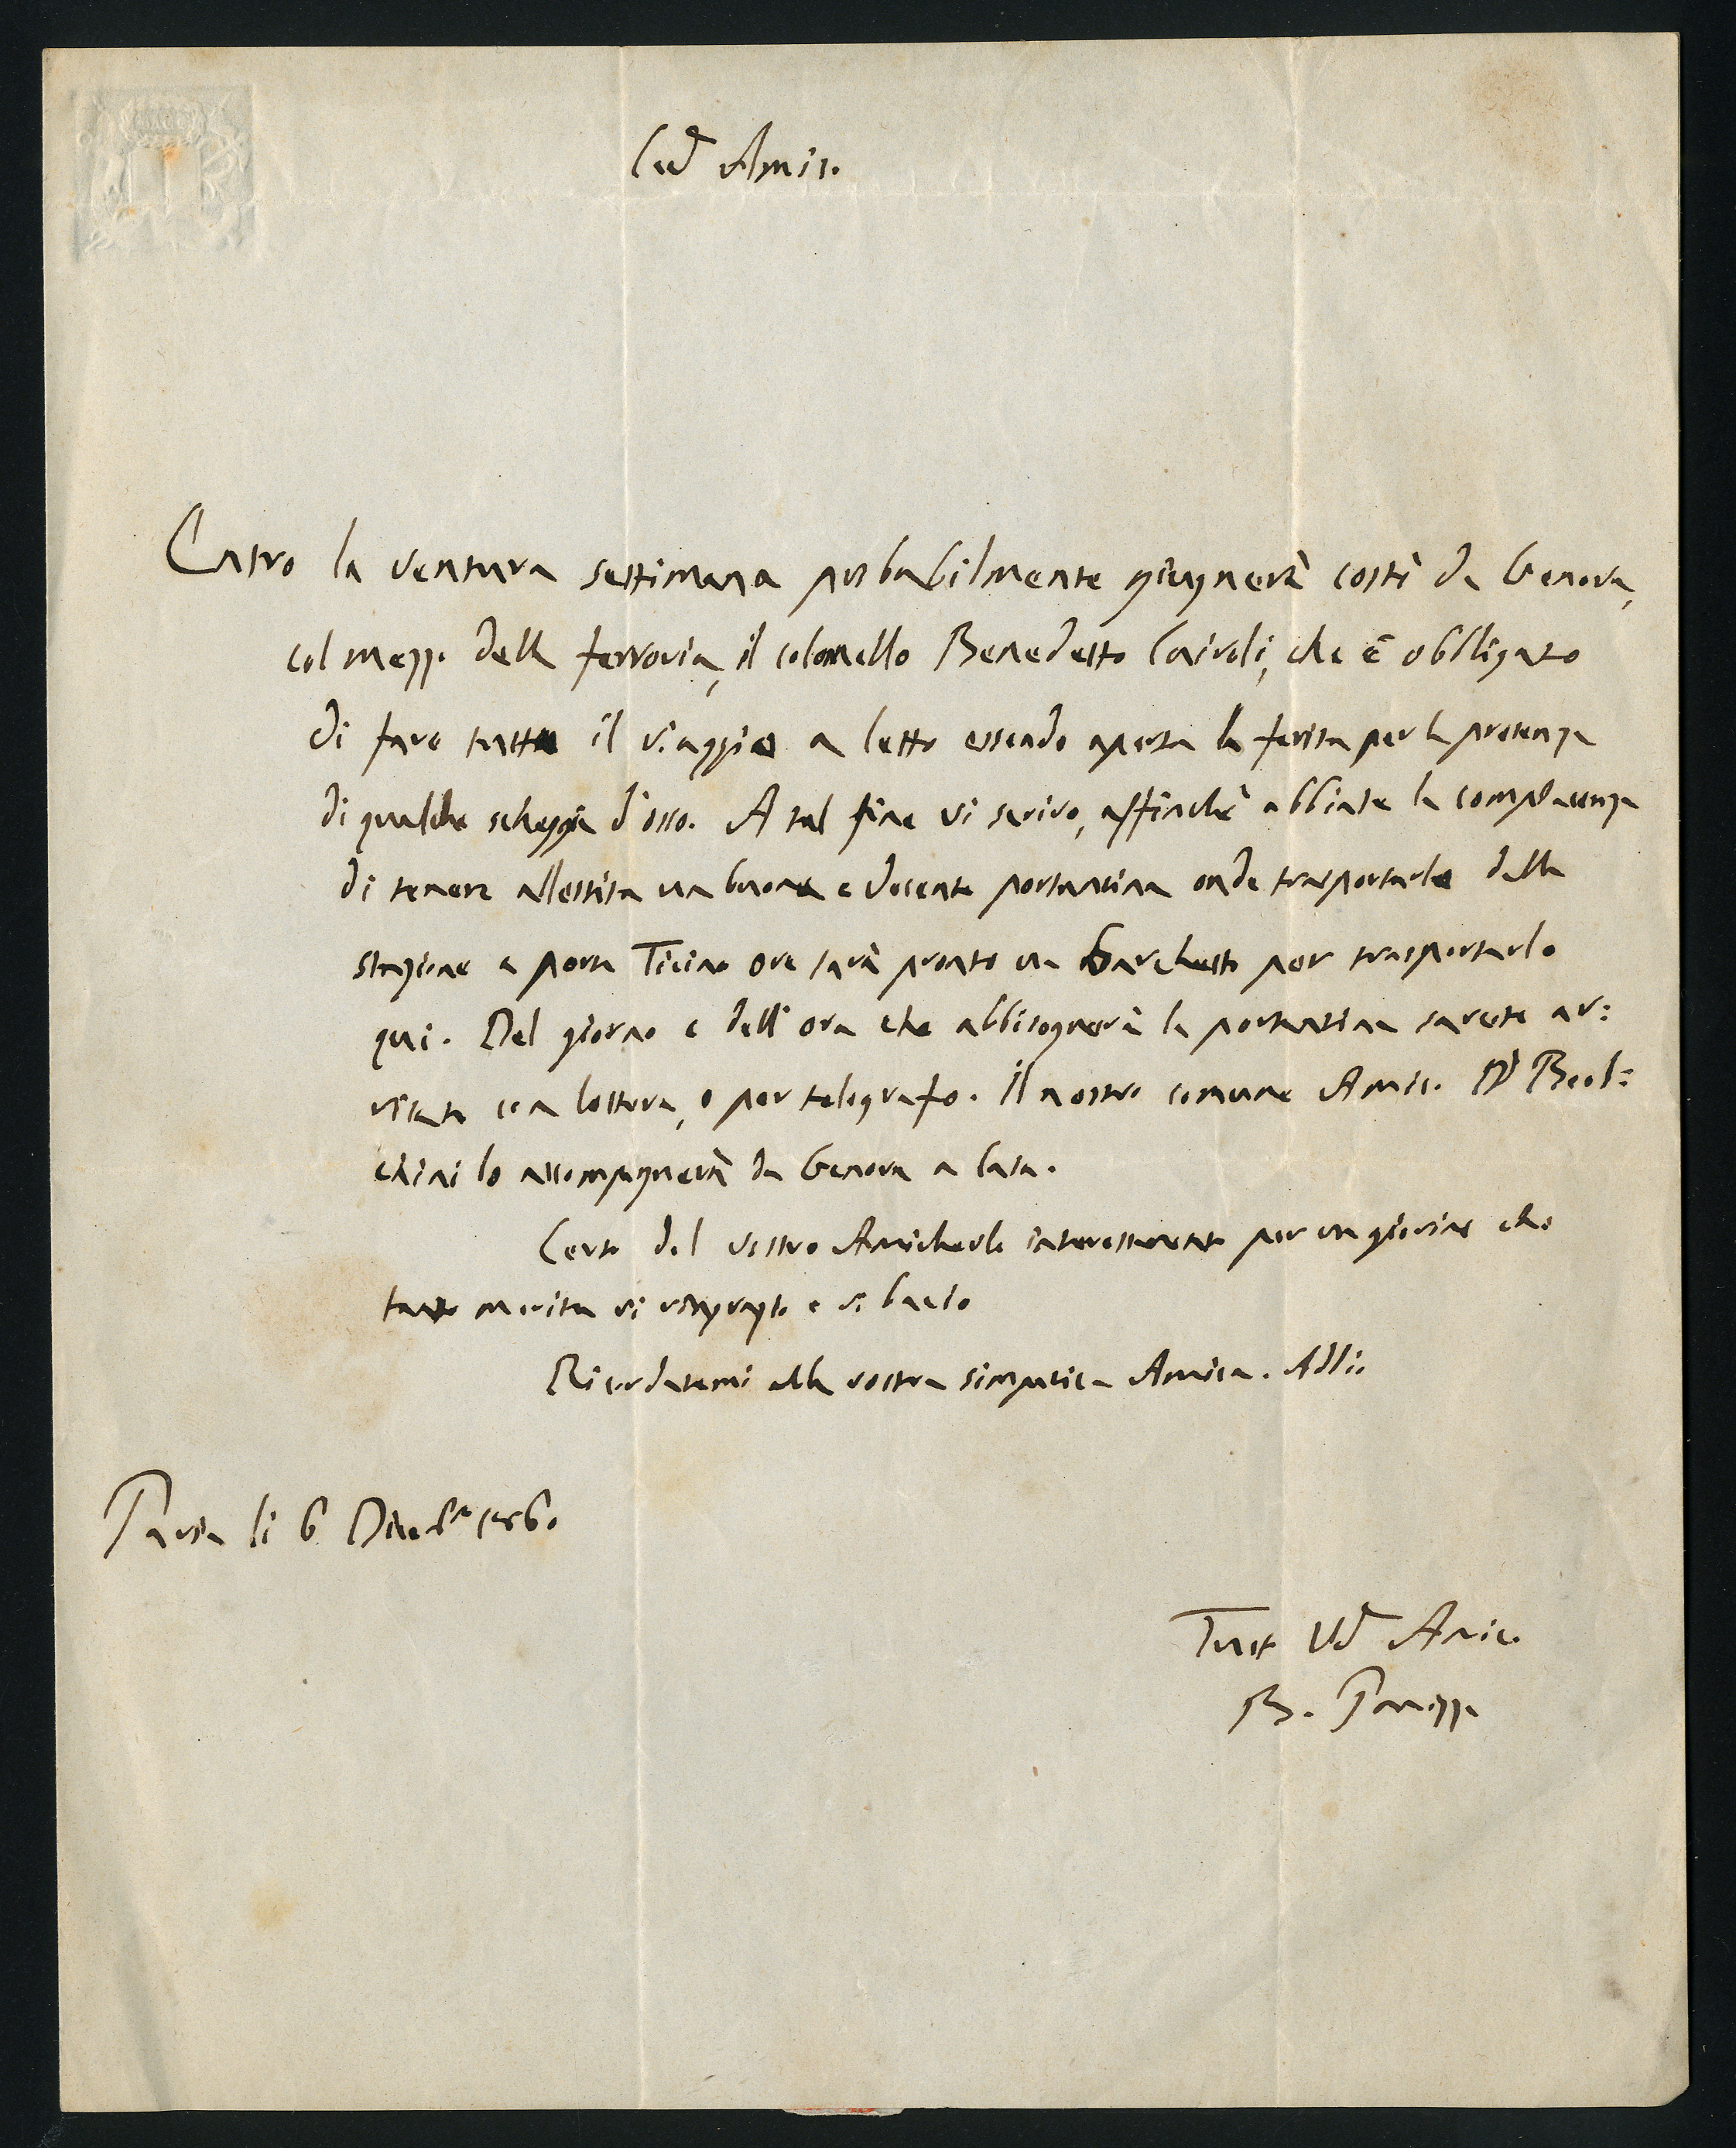 Car.o Amic.
Entro la ventura settimana probabilmente giugnerà costì da Genova,
col mezzo della ferrovia, il colonnello Benedetto Cairoli, che è obbligato
di fare tutto il viaggio a letto essendo aperta la ferita per la presenza
di qualche scheggia d'osso. A tal fine vi scrivo, affinchè abbiate la compiacenza
di tenere allestita una buona e decente portantina onde trasportarlo dalla
stazione a porta Ticino ove sarà pronto un barchetto per trasportarlo
qui. Del giorno e dell'ora che abbisognerà la portantina sarete av:
visato con lettera, o per telegrafo. Il nostro comune Amico Dr Beol:
chini lo accompagnerà da Genova a casa.
Certo del vostro Amichevole interessamento per un giovine che
tanto merita vi ringrazio e vi bacio
Ricordatemi alla vostra simpatica Amica. Addio
Pavia li 6 Dicbre 1860
Tutto Vo Amico
B. Panizza